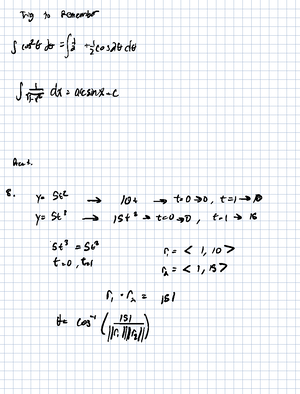 Trig to Remember
∫ cos²θ dθ = ∫ 1/2 + 1/2 cos2θ dθ
∫ 1/√(1-x²) dx = arcsinx + C
8. y= 5t² → 10t → t=0→0, t=1→10
y= 5t³ → 15t² → t=0→0, t=1→15
5t² = 5t³
t=0, t=1
r₁ = < 1, 10 >
r₂ = < 1, 15 >
r₁ · r₂ = 151
θ= cos⁻¹ (151/||r₁|| ||r₂||)